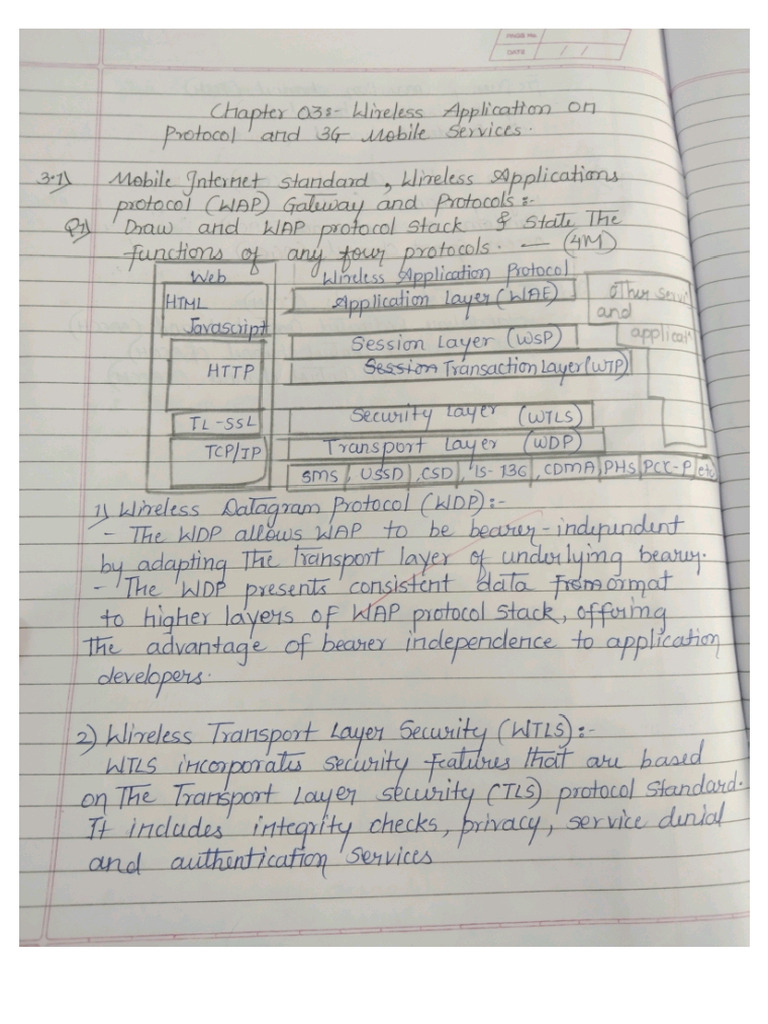 PAGE No.
DATE / /
Chapter 03:- Wireless Application on
Protocol and 3G Mobile Services.
3.1) Mobile Internet standard, Wireless Applications
protocol (WAP) Gateway and Protocols:-
Q1) Draw and WAP protocol stack & State The
functions of any four protocols. — (4M)
Web Wireless Application Protocol
HTML Application Layer (WAE) other servi
Javascript and
Session Layer (WSP) applicati
HTTP Session Transaction Layer (WTP)
TL-SSL Security Layer (WTLS)
TCP/IP Transport Layer (WDP)
SMS, USSD, CSD, IS-136, CDMA, PHS, PCK-P, etc
1) Wireless Datagram Protocol (WDP):-
- The WDP allows WAP to be bearer-independent
by adapting The transport layer of underlying bearer.
- The WDP presents consistent data from ormat
to higher layers of WAP protocol stack, offering
the advantage of bearer independence to application
developers.
2) Wireless Transport Layer Security (WTLS):-
WTLS incorporates security features that are based
on The Transport Layer security (TLS) protocol standard.
It includes integrity checks, privacy, service denial
and authentication services